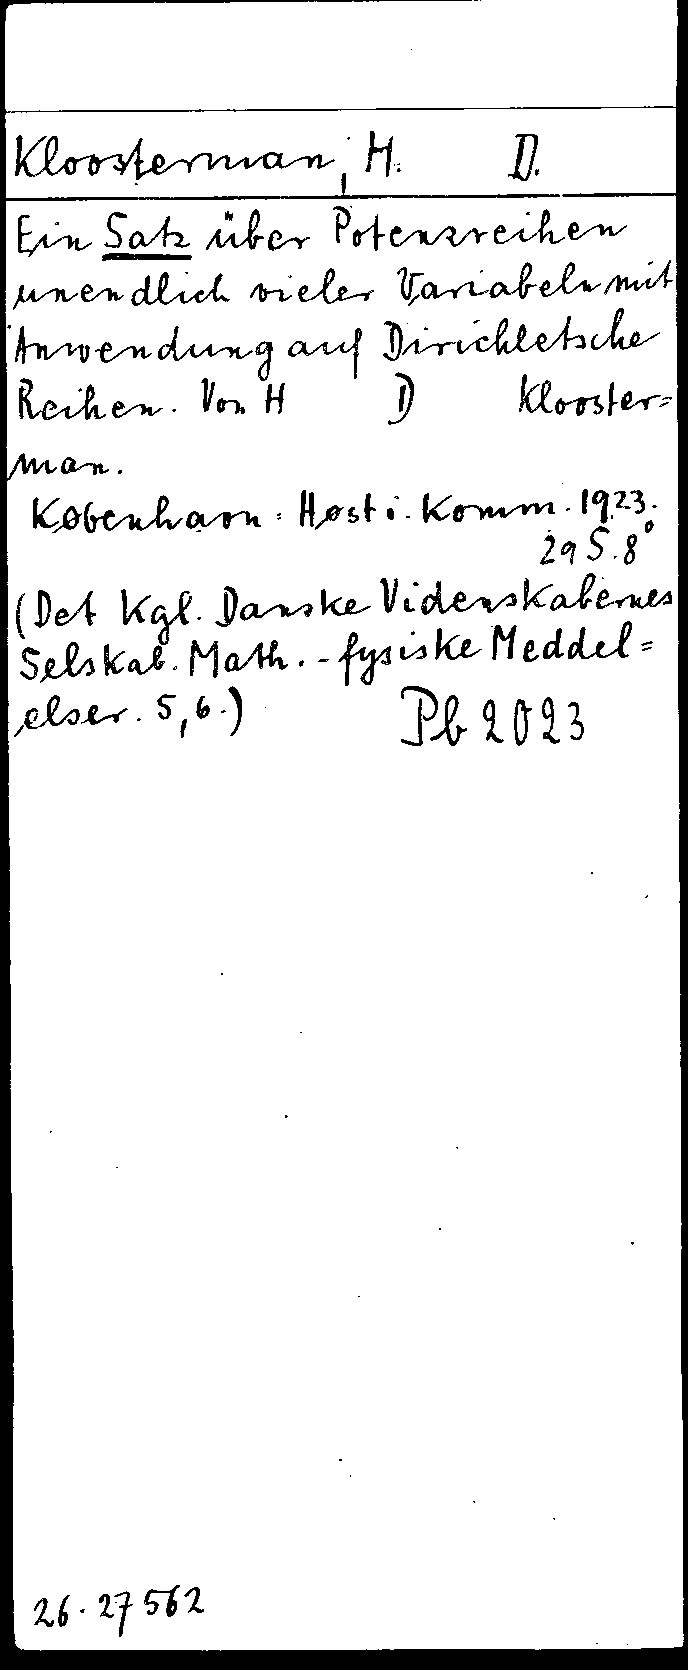 Kloosterman, H. D.
Ein Satz über Potenzreihen
unendlich vieler Variabeln mit
Anwendung auf Dirichletsche
Reihen. Von H D Klooster=
man.
København: Høst i. Komm. 1923.
29 S. 8°
(Det Kgl. Danske Videnskabernes
Selskab. Math.-fysiske Meddel=
elser. 5,6.)
Pb 2023
26.27562